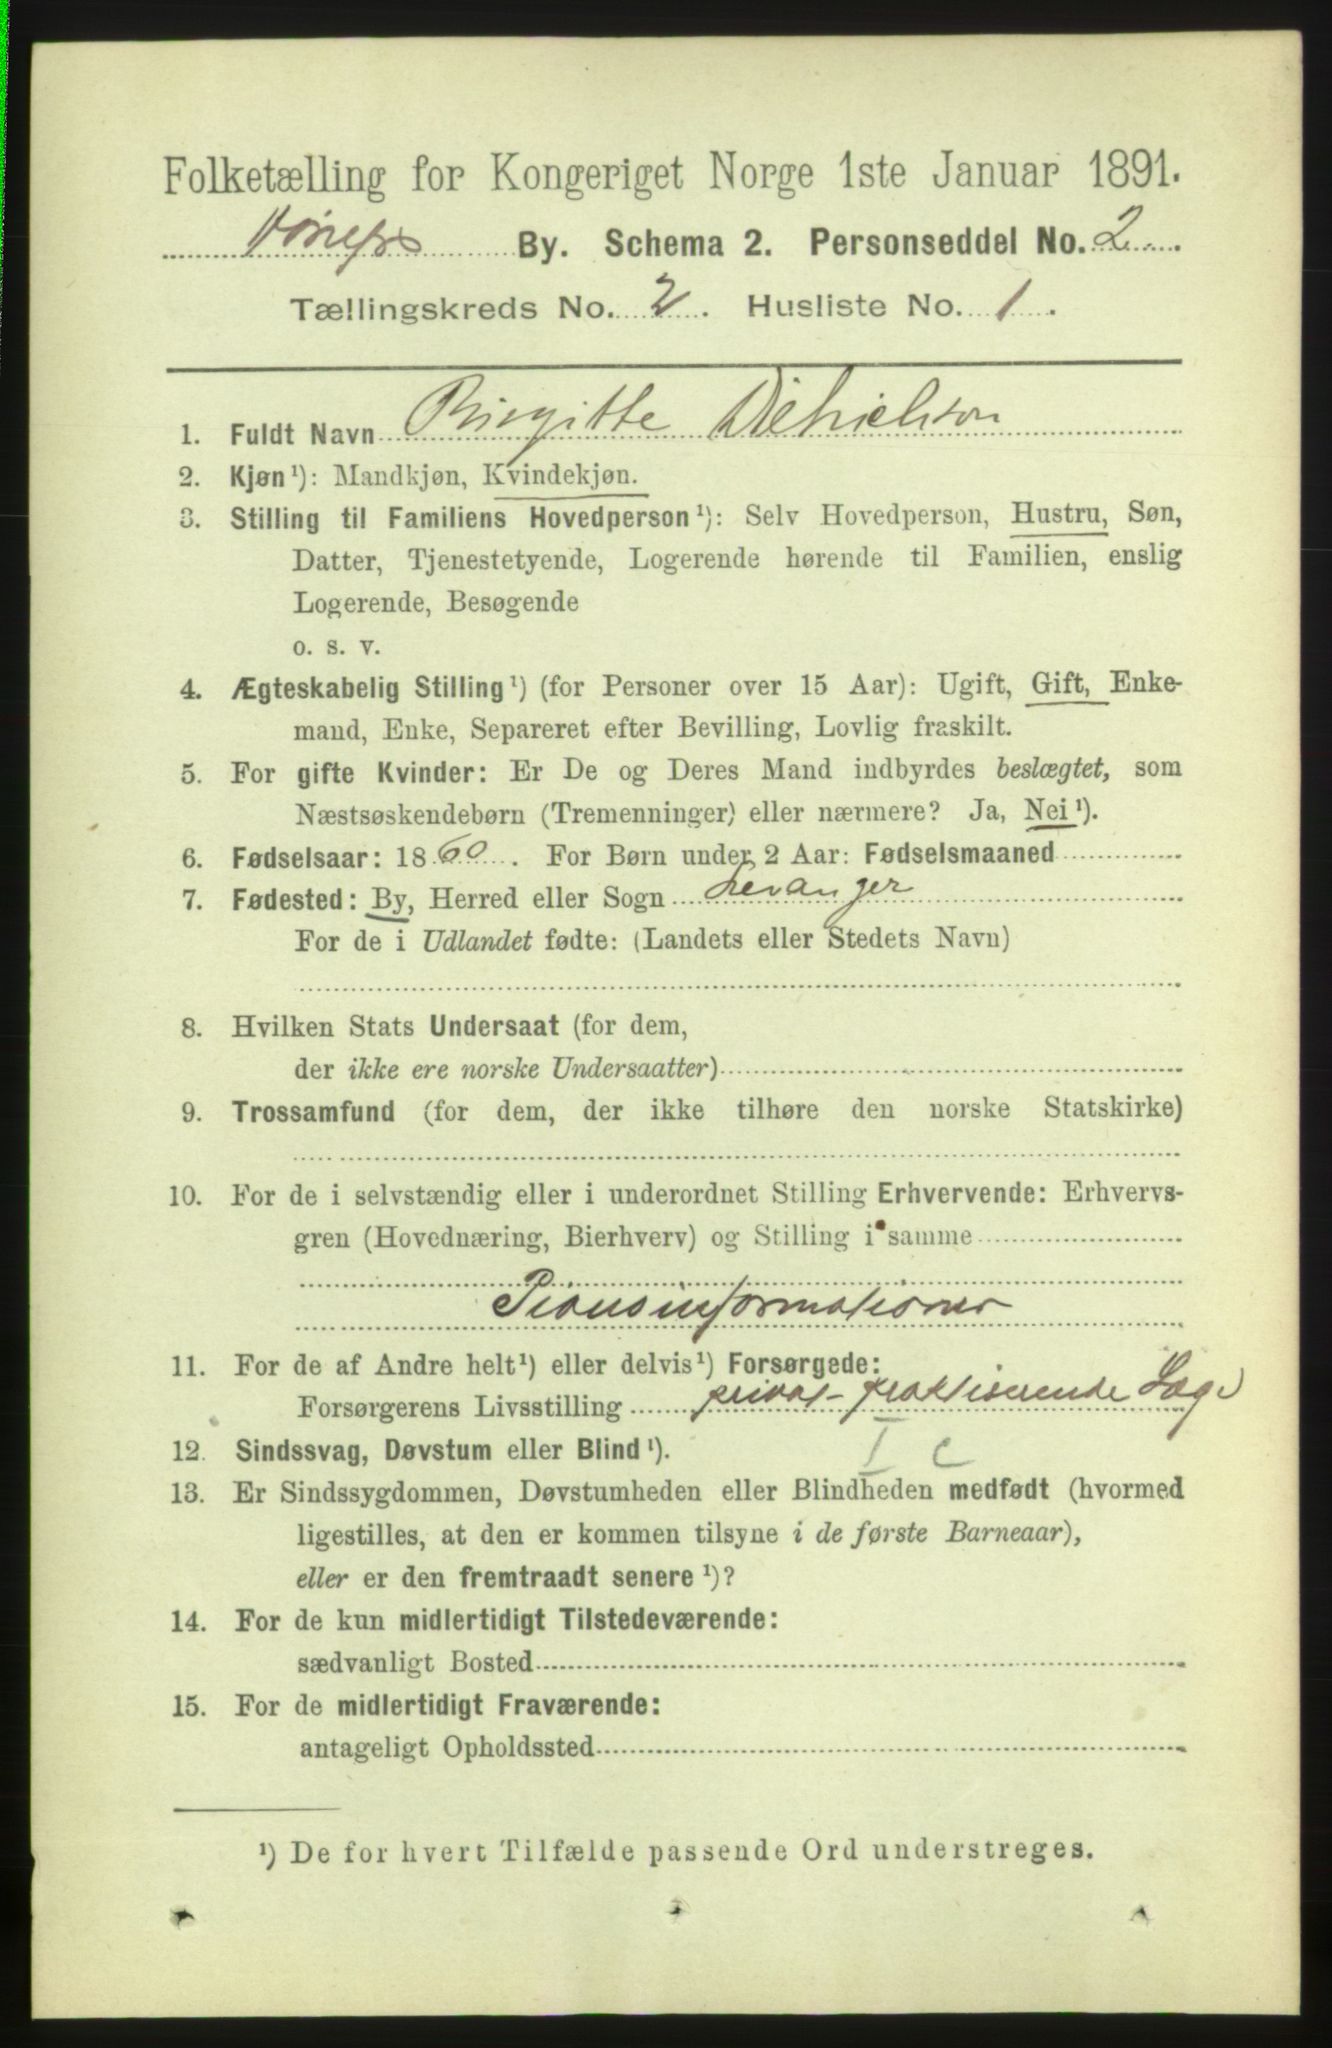 Folketælling for Kongeriget Norge 1ste Januar 1891.
Hønefos By. Schema 2. Personseddel No. 2
Tællingskreds No. 2. Husliste No. 1.
1. Fuldt Navn Birgitte Dietrichson
2. Kjøn¹): Mandkjøn, Kvindekjøn.
3. Stilling til Familiens Hovedperson¹): Selv Hovedperson, Hustru, Søn,
Datter, Tjenestetyende, Logerende hørende til Familien, enslig
Logerende, Besøgende
o. s. v.
4. Ægteskabelig Stilling¹) (for Personer over 15 Aar): Ugift, Gift, Enke-
mand, Enke, Separeret efter Bevilling, Lovlig fraskilt.
5. For gifte Kvinder: Er De og Deres Mand indbyrdes beslægtet, som
Næstsøskendebørn (Tremenninger) eller nærmere? Ja, Nei¹).
6. Fødselsaar: 1860. For Børn under 2 Aar: Fødselsmaaned
7. Fødested: By, Herred eller Sogn Levanger
For de i Udlandet fødte: (Landets eller Stedets Navn)
8. Hvilken Stats Undersaat (for dem,
der ikke ere norske Undersaatter)
9. Trossamfund (for dem, der ikke tilhøre den norske Statskirke)
10. For de i selvstændig eller i underordnet Stilling Erhvervende: Erhvervs-
gren (Hovednæring, Bierhverv) og Stilling i samme
Pianoinformationer
11. For de af Andre helt¹) eller delvis¹) Forsørgede:
Forsørgerens Livsstilling privat-praktiserende Læge
I c
12. Sindssvag, Døvstum eller Blind¹).
13. Er Sindssygdommen, Døvstumheden eller Blindheden medfødt (hvormed
ligestilles, at den er kommen tilsyne i de første Barneaar),
eller er den fremtraadt senere¹)?
14. For de kun midlertidigt Tilstedeværende:
sædvanligt Bosted
15. For de midlertidigt Fraværende:
antageligt Opholdssted
¹) De for hvert Tilfælde passende Ord understreges.